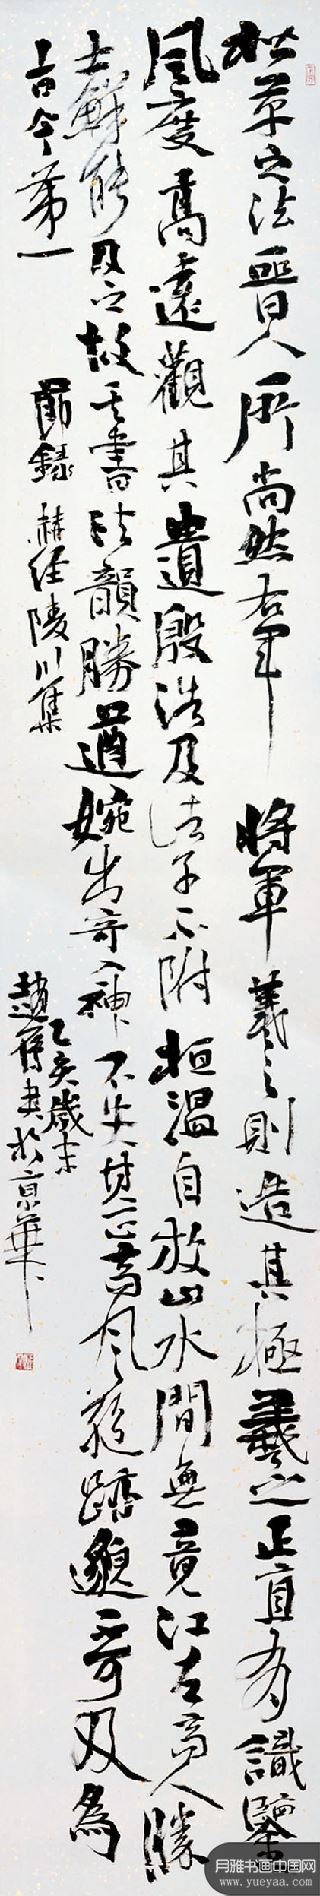 草之法晉人所尚然右軍將軍羲之則造其極羲之正直有識鑒
風度高遠觀其遺殷浩及道子不附桓温自放山水間無竟江左高人勝
士鮮能及之故其書法韻勝遒婉出奇入神不失其正高風絶跡邈不可及為
古今第一
節錄郝經陵川集
乙亥歲末
趙書於京華
月雅书画中国网
www.yueyaa.com